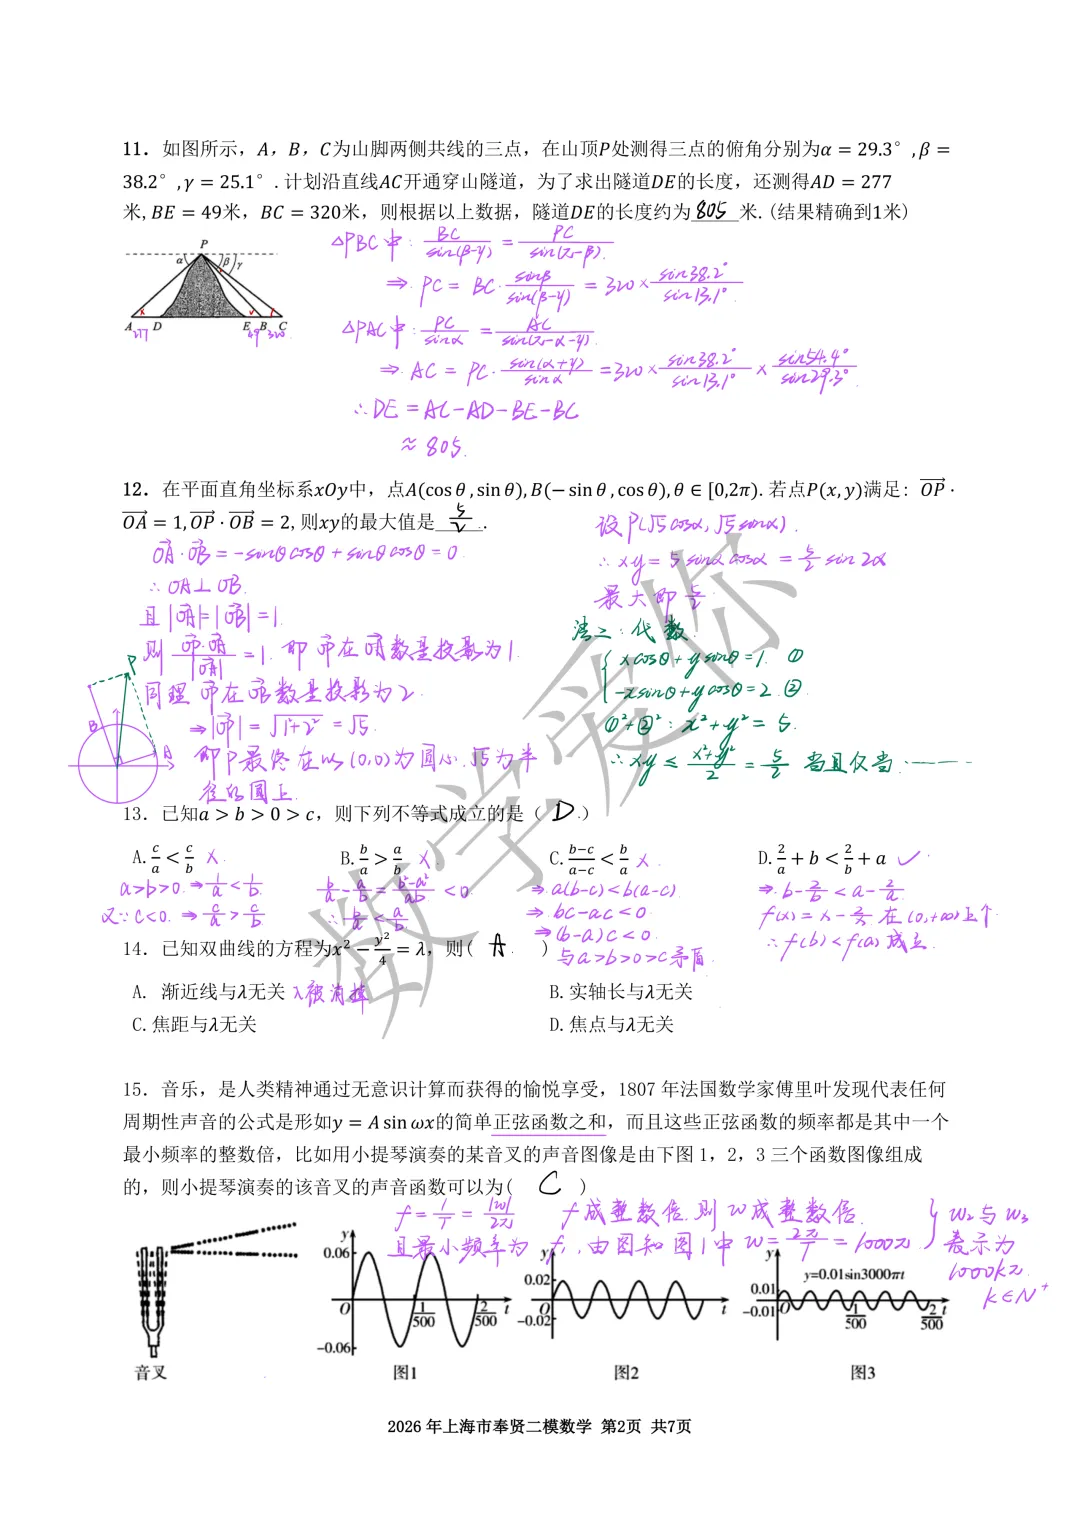 11. 如图所示，A，B，C为山脚两侧共线的三点，在山顶P处测得三点的俯角分别为α = 29.3°, β =
38.2°, γ = 25.1°. 计划沿直线AC开通穿山隧道，为了求出隧道DE的长度，还测得AD = 277
米, BE = 49米，BC = 320米，则根据以上数据，隧道DE的长度约为 805 米. (结果精确到1米)
P
α β γ
A D E B C
277 49 320
△PBC中: BC/sin(β-γ) = PC/sin(π-β).
⇒ PC = BC · sinβ/sin(β-γ) = 320 × sin38.2°/sin13.1°.
△PAC中: PC/sinα = AC/sin(π-α-γ).
⇒ AC = PC · sin(α+γ)/sinα = 320 × sin38.2°/sin13.1° × sin54.4°/sin29.3°.
∴ DE = AC-AD-BE-BC
≈ 805.
12. 在平面直角坐标系xOy中，点A(cos θ , sin θ), B(− sin θ , cos θ), θ ∈ [0,2π). 若点P(x, y)满足: OP ·
OA = 1, OP · OB = 2, 则xy的最大值是 5/2 .
OA · OB = -sinθcosθ + sinθcosθ = 0.
∴ OA⊥OB.
且 |OA|=|OB|=1.
则 OP·OA/|OA| = 1. 即 OP在OA数量投影为1.
同理 OP在OB数量投影为2.
⇒ |OP| = √(1²+2²) = √5.
即P最终在以(0,0)为圆心.√5为半
径的圆上.
P
B
A
设P(√5cosα, √5sinα).
∴ xy = 5sinαcosα = 5/2 sin2α
最大即 5/2.
法二: 代数.
xcosθ + ysinθ = 1. ①
-xsinθ + ycosθ = 2. ②
①²+②²: x²+y² = 5.
∴ xy ≤ (x²+y²)/2 = 5/2 当且仅当……
13. 已知a > b > 0 > c，则下列不等式成立的是（ D. ）
A. c/a < c/b × B. b/a > a/b × C. (b−c)/(a−c) < b/a × D. 2/a + b < 2/b + a ✓
a>b>0. ⇒ 1/a < 1/b.
又∵c<0. ⇒ c/a > c/b
b/a - a/b = (b²-a²)/ab < 0.
∴ b/a < a/b.
⇒ a(b-c) < b(a-c)
⇒ bc-ac<0
⇒ (b-a)c<0.
与a>b>0>c矛盾
f(x) = x - 2/x 在(0,+∞)上↑
∴ f(b)<f(a)成立.
14. 已知双曲线的方程为x² − y²/4 = λ，则( A. )
A. 渐近线与λ无关 λ被消掉 B. 实轴长与λ无关
C. 焦距与λ无关 D. 焦点与λ无关
15. 音乐，是人类精神通过无意识计算而获得的愉悦享受，1807 年法国数学家傅里叶发现代表任何
周期性声音的公式是形如y = A sin ωx的简单正弦函数之和，而且这些正弦函数的频率都是其中一个
最小频率的整数倍，比如用小提琴演奏的某音叉的声音图像是由下图 1，2，3 三个函数图像组成
的，则小提琴演奏的该音叉的声音函数可以为( C )
f = 1/T = |w|/2π f成整数倍.则w成整数倍.
且最小频率为 f₁,由图知图1中 w = 2π/T = 1000π.
w₂与w₃
表示为
1000kπ.
k∈N⁺
y 0.06 O 1/500 2/500 t −0.06
y 0.02 O t −0.02
y 0.01 y=0.01sin3000πt −0.01 O 1/500 2/500 t
音叉 图1 图2 图3
数学爱你
2026 年上海市奉贤二模数学 第2页 共7页